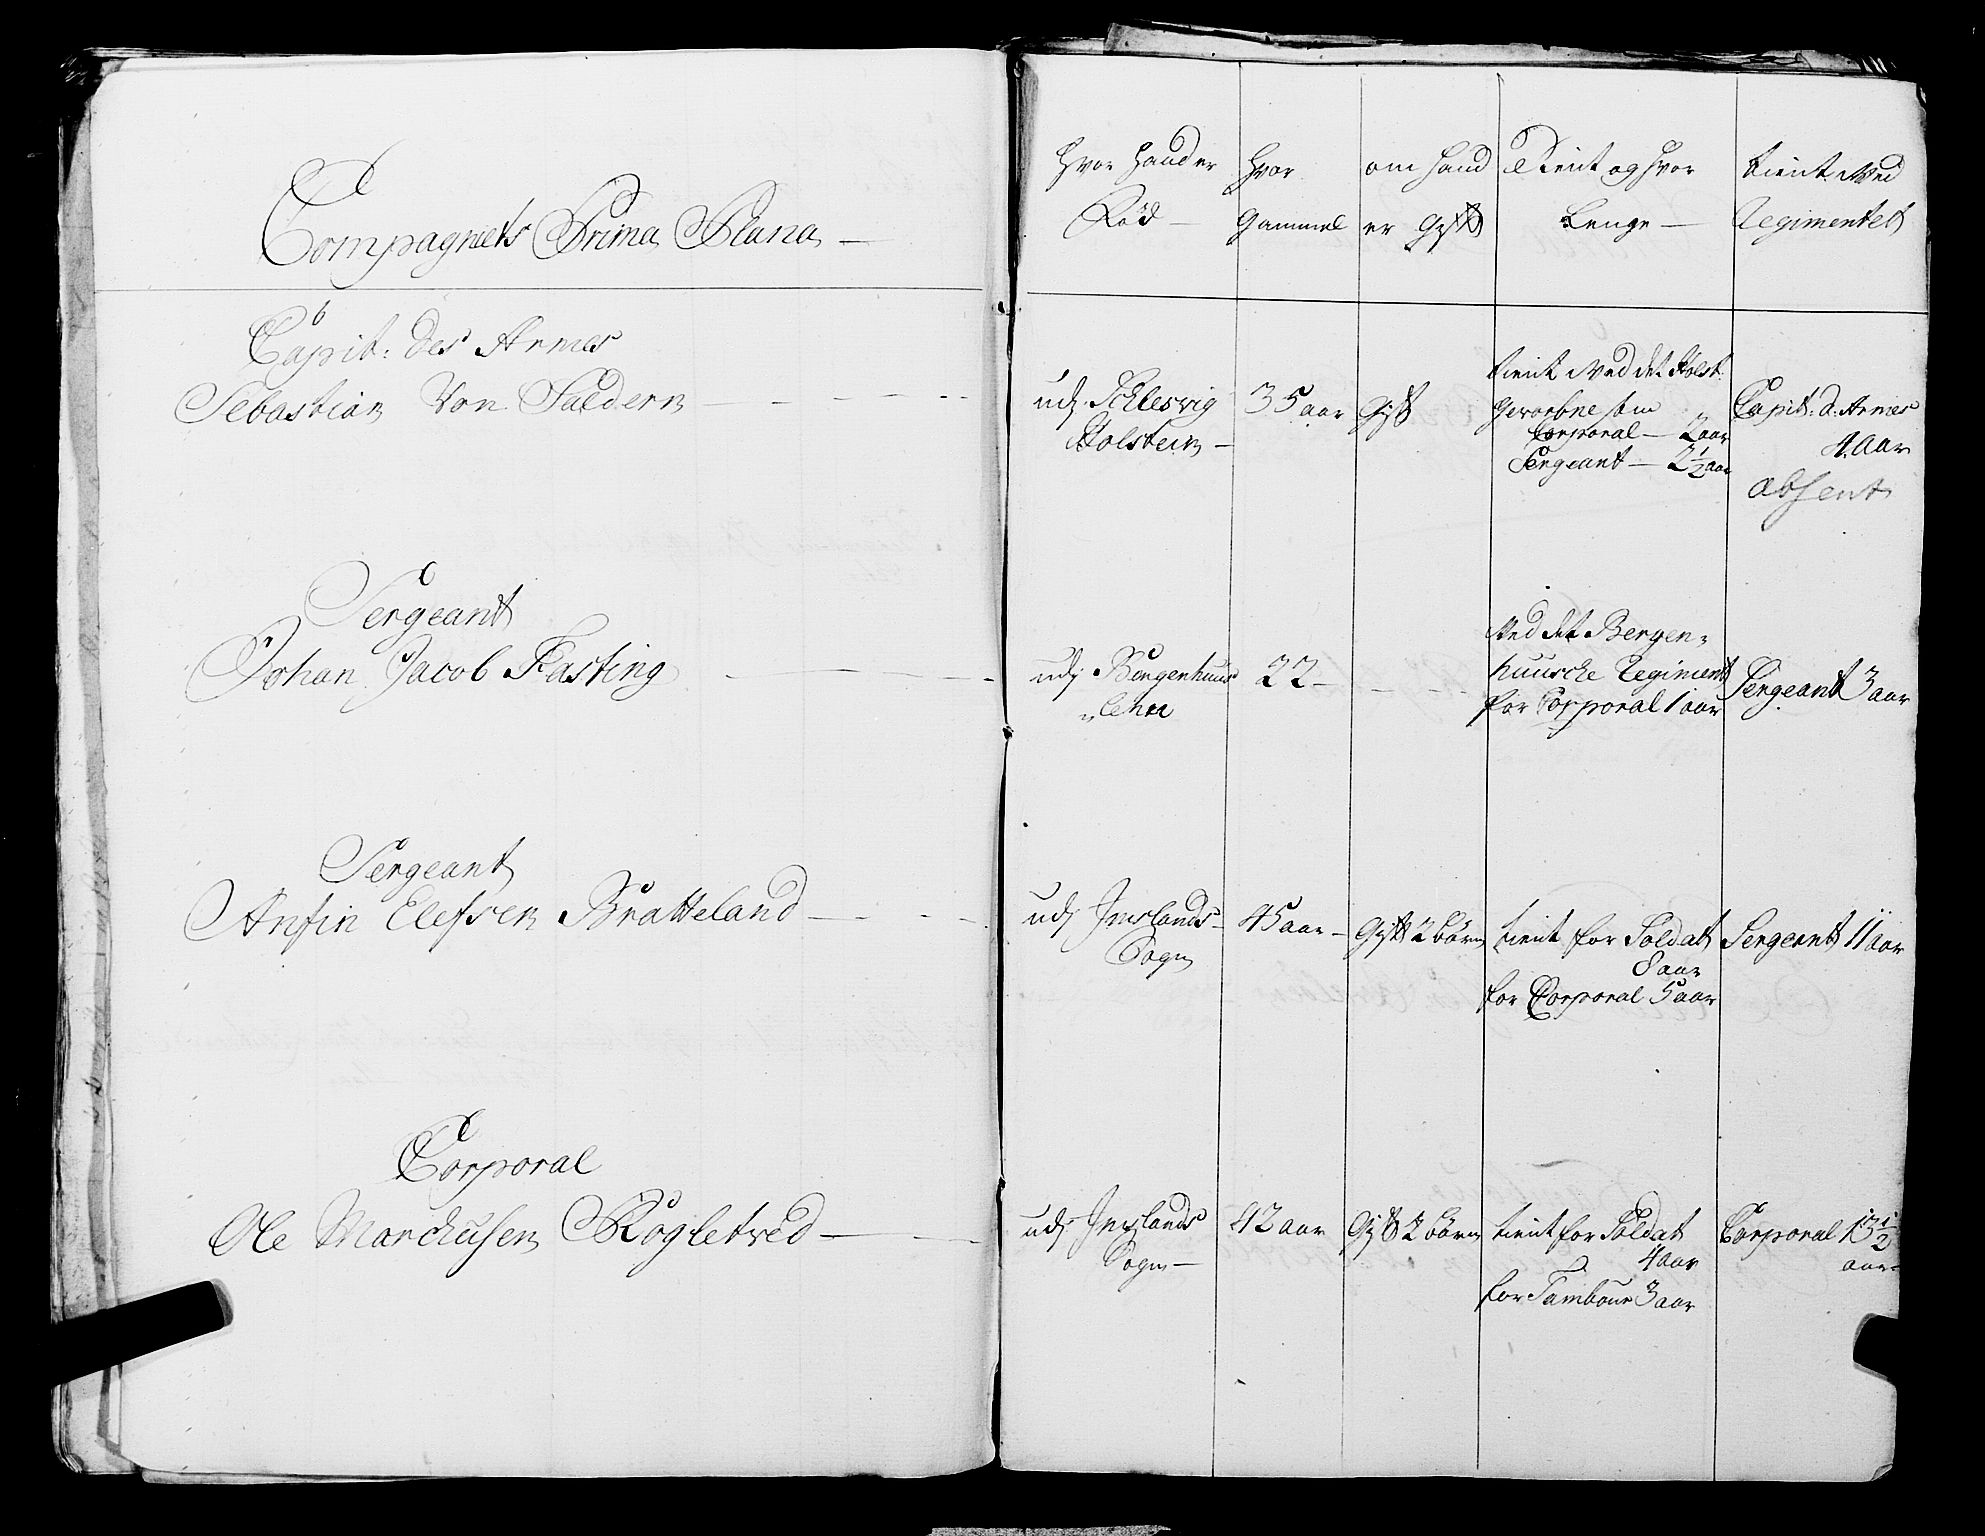 Compagniets Prima Plana —
Capit: des Armes
Sebastian Von Saldern — — — — — - -
Sergeant
Johan Jacob Fasting — — — -
Sergeant
Anfin Elefsen Bratteland — — - -
Corporal
Ole Marchusen Røgletved — — -
Hvor hand er
Fód —
Hvor
Gammel
om hand
er Gift
Tient og hvor
Lenge —
tient Med
Regimentet
udj Schlesvig
Holstein —
35 aar
Gift
tient Med det Holst:
Gevorbne som
Corporal — 2 aar
Sergeant — 2½ aar
Capit: d: Armes
4 aar
absent
udj Bergenhuus
Lehn
22 —
Ved det Bergen-
huusche Regiment
for Corporal 1 aar
Sergeant 3 aar
udj Imslands-
Sogn
45 aar —
Gift 2 børn
tient for Soldat
8 aar
for Corporal 5 aar
Sergeant 11 aar
udj Imslands
Sogn —
42 aar
Gift 2 børn
tient for Soldat
4 aar
for Tambour 3 aar
Corporal 13½
aar